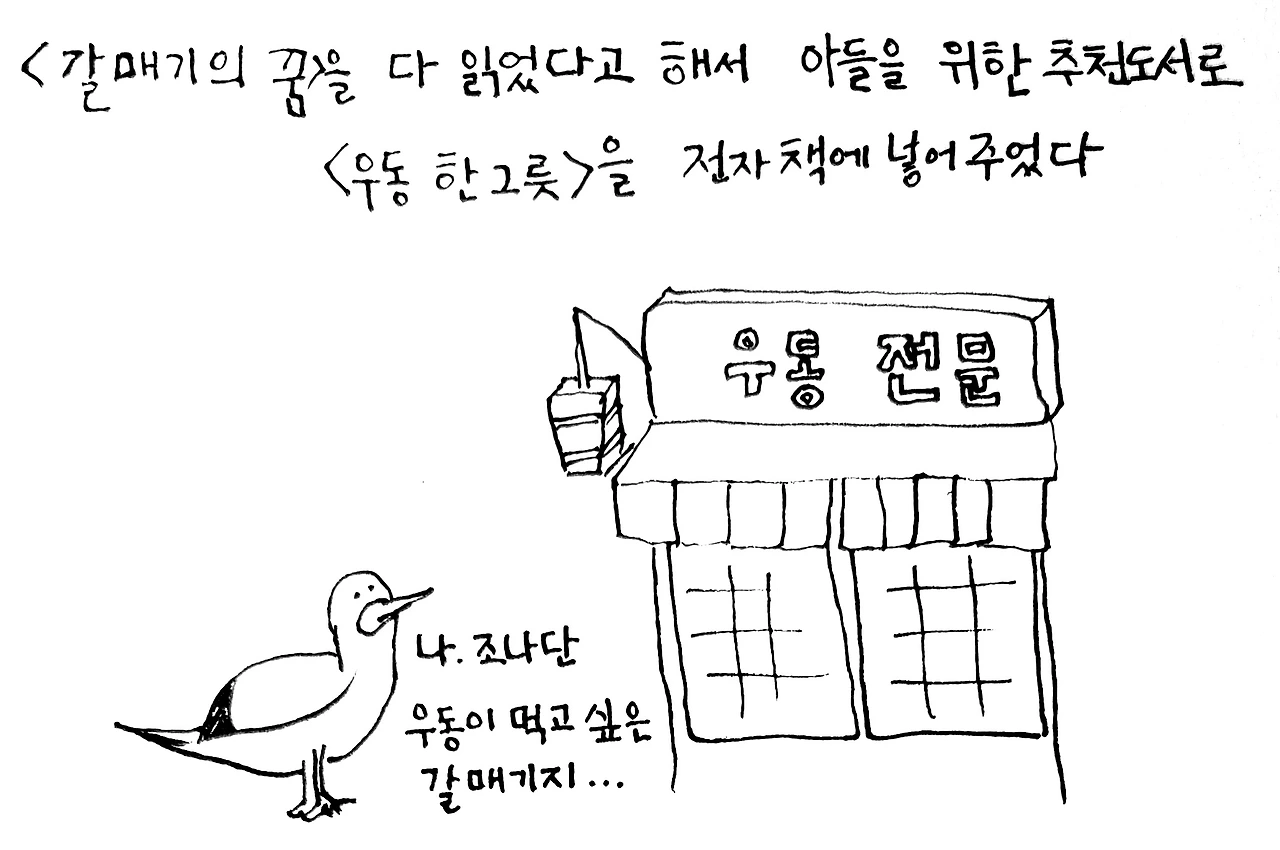 <갈매기의 꿈>을 다 읽었다고 해서 아들을 위한 추천도서로
<우동 한그릇>을 전자책에 넣어주었다
우동 전문
나. 조나단
우동이 먹고 싶은
갈매기지...